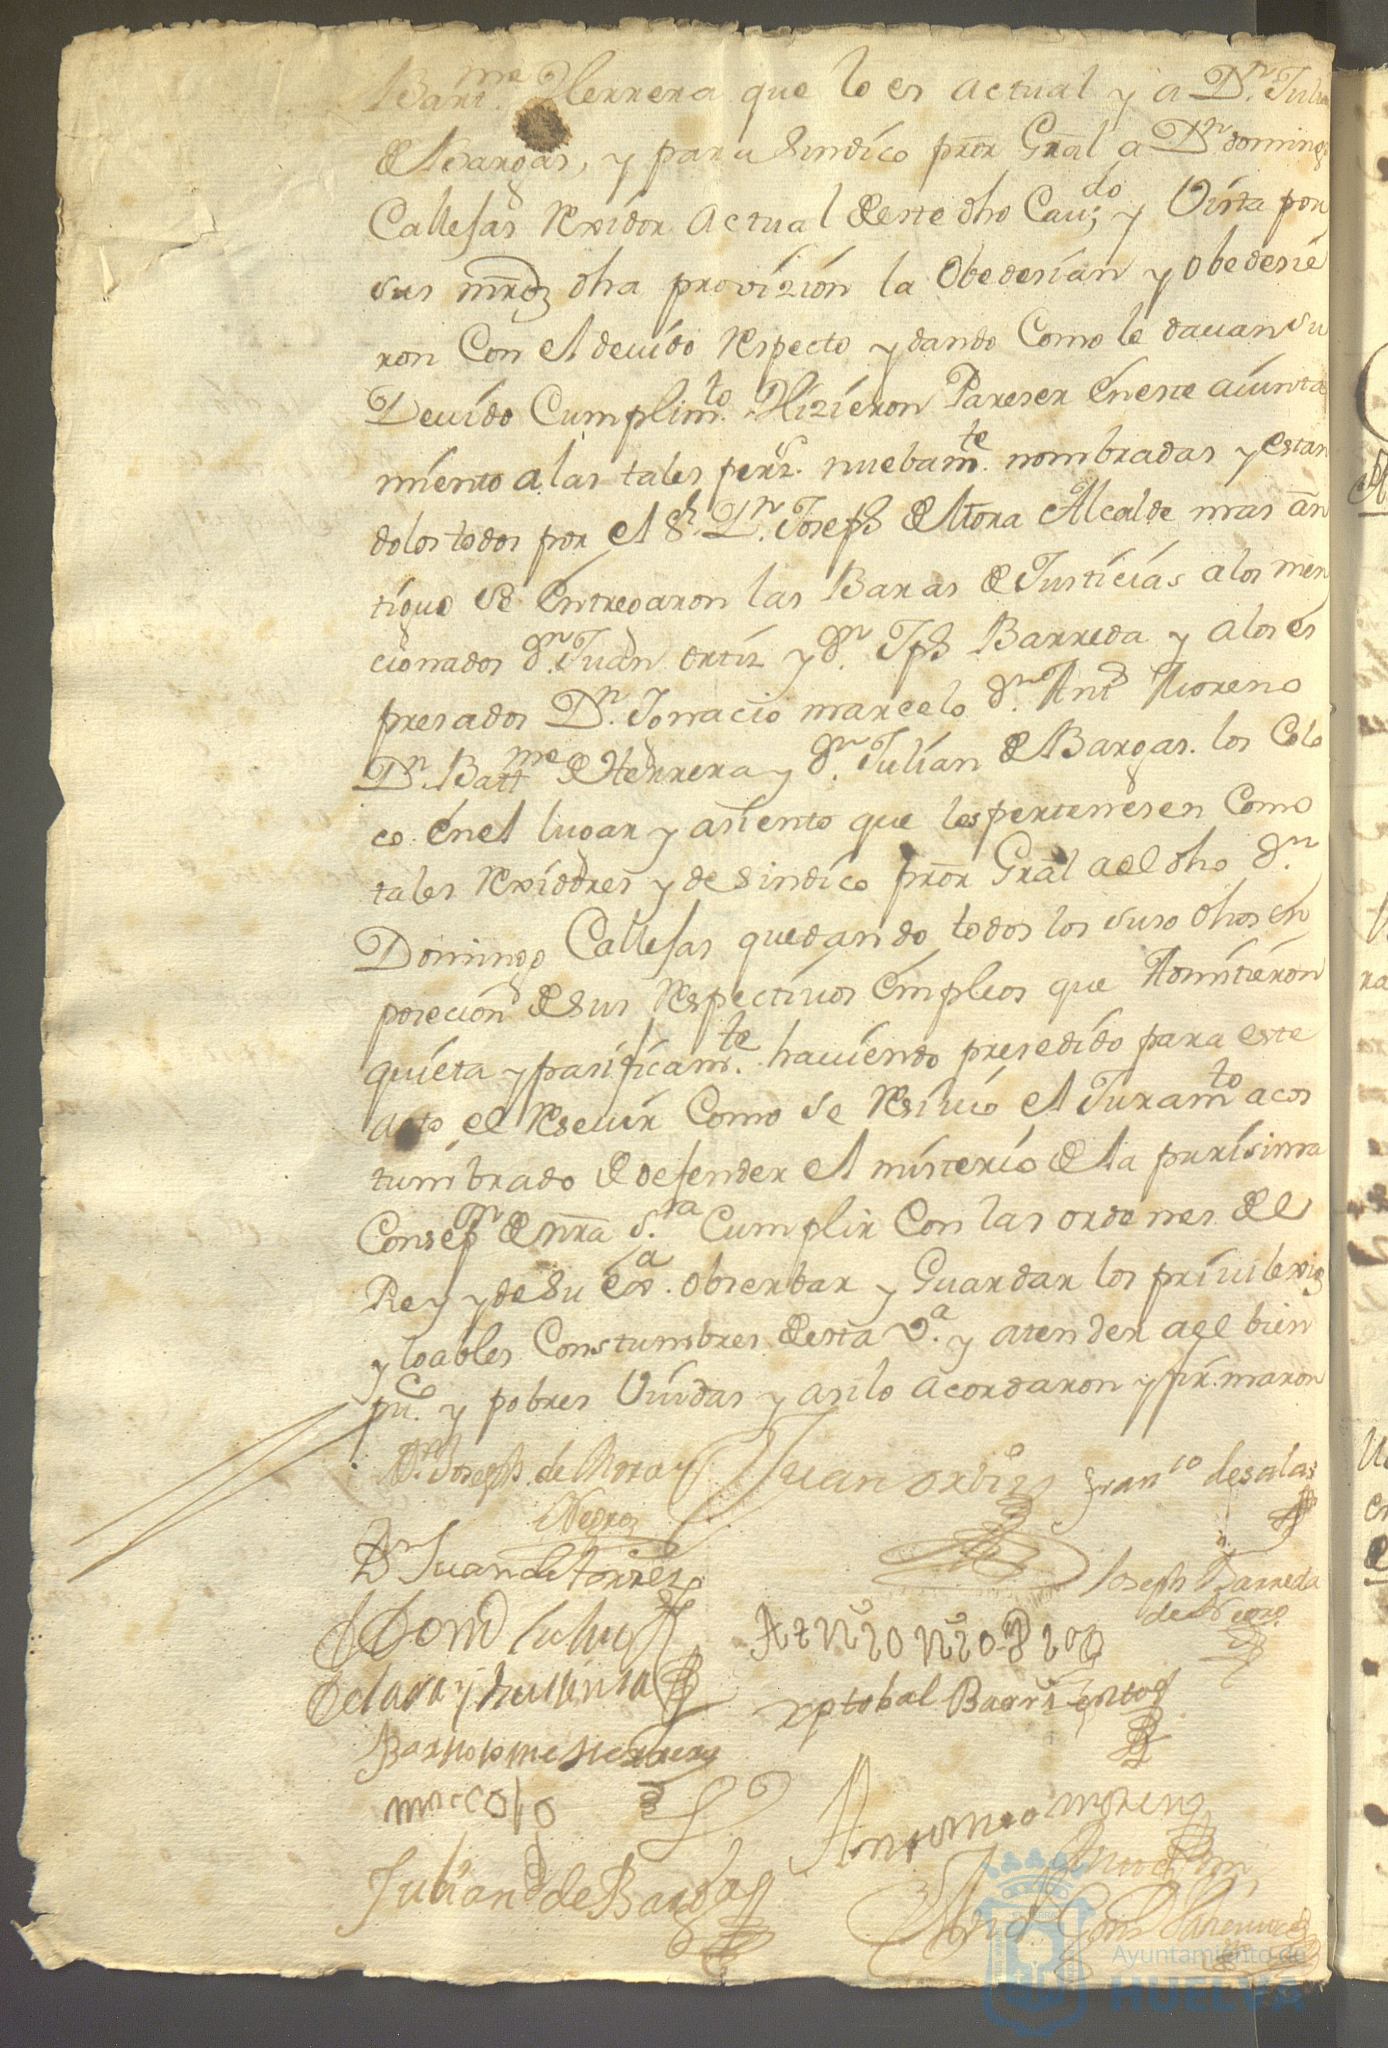 Bart.me Herrera que lo es actual y a D.n Julian
de Bargas, y para Sindico pror Gral a Dn domingo
Callesas Rexidor Actual de este dho Cau.do y Vista por
sus mrds dha provizión la Obedesian y obedesie
ron Con el deuido Respecto y dando Como le dauan su
Deuido Cumplim.to Hizieron Pareser en este aiunta
miento a las tales pers.s nuebam.te nombradas y estan
dolos todos por el S.r D.n Joseph de Mora Alcalde mas an
tiguo se entregaron las Baras de Justicias a los men
cionados d.n Juan ortiz y d.n Jph Barreda y a los es
presados D.n Ignacio marcelo d.n Anto Moreno
D.n Batt.me de Herrera y d.n Julian de Bargas. los Colo
co en el lugar y asiento que les pertenesen Como
tales Rexidores y de Sindico pror Gral a el dho d.n
Domingo Callesas quedando todos los suso dhos en
poseción de sus Respectiuos émpleos que Admitieron
quieta y pasificam.te hauiendo presedido para este
acto el Reseuir Como se Resiuió el Juram.to acos
tumbrado de defender el misterio de la purisima
Consep.n de nra S.ra Cumplir Con las ordenes de el
Rey y de Su ex.a obserbar y Guardar los priuilexios
y loables Constumbres de esta V.a y atender a el bien
pu.co y pobres Viudas y asi lo acordaron y firmaron
D.n Joseph de Mora y Juan ortiz Fran.co de salas
Negron
Dn Juan de torres
Joseph Barreda
de Negro
Dom
Antonio
de lara y
xptobal Barrientos
Bartholome Herrera
Antonio moreno
Julian de Bargas
Ante mi
Ayuntamiento de
HUELVA